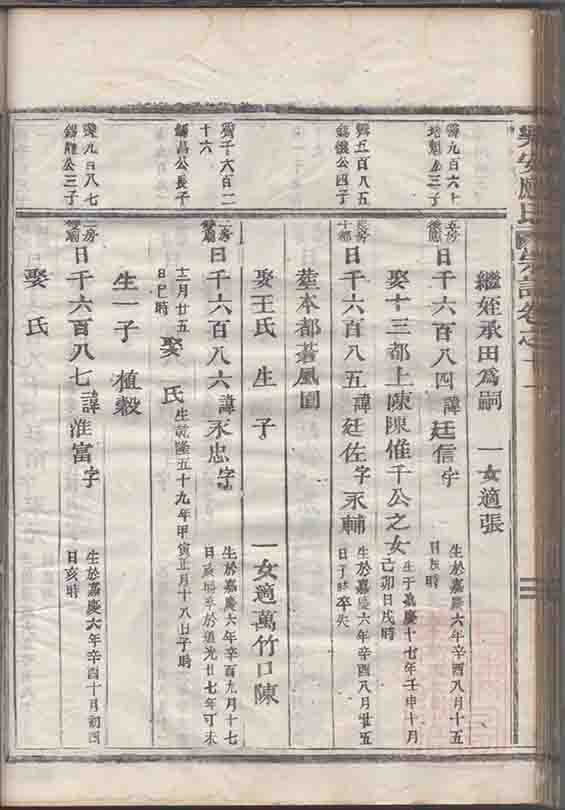 樂安應氏宗譜卷之十一
繼姪承田爲嗣 一女適張
舜九百六十
培魁公三子
日千六百八四諱廷信字 生於嘉慶六年辛酉八月十五
日亥時
娶十三都上陳陳惟千公之女 生于嘉慶十七年壬申十月
己卯日戌時
舜五百八五
錫儀公四子
日千六百八五諱廷佐字永輔 生於嘉慶六年辛酉八月廿五
日子時卒失
塟本都蒼鳳園
娶王氏生子 一女適萬竹口陳
舜千六百二
十六
錫昌公長子
二房
日千六百八六諱永忠字 生於嘉慶六年辛酉九月十七
日亥時卒於道光廿七年丁未
十二月廿五
日巳時
娶 氏 生乾隆五十九年甲寅正月十八日子時
生一子植穀
舜九百八七
錫龍公三子
二房
日千六百八七諱淮富字 生於嘉慶六年辛酉十月初四
日亥時
娶氏